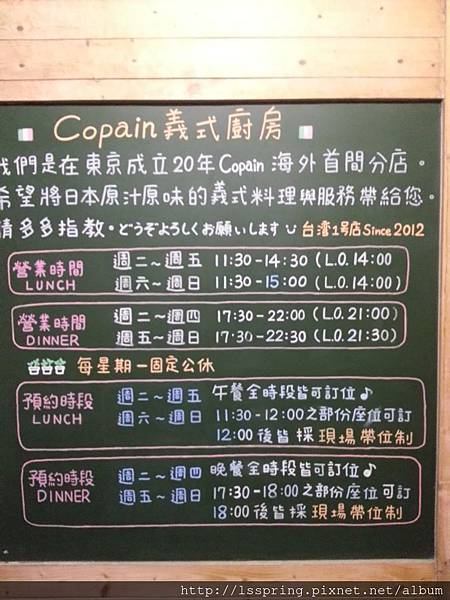 Copain義式廚房
我們是在東京成立20年Copain 海外首間分店。
希望將日本原汁原味的義式料理與服務帶給您。
請多多指教。どうぞよろしくお願いします 台湾1号店Since 2012
營業時間 週二～週五 11:30-14:30 (L.O.14:00
LUNCH 週六～週日 11:30-15:00 (L.O.14:00)
營業時間 週二～週四 17:30-22:00 (L.O.21:00)
DINNER 週五～週日 17:30-22:30 (L.O.21:30)
每星期一固定公休
預約時段 週二～週五 午餐全時段皆可訂位♪
LUNCH 週六～週日 11:30-12:00之部份座位可訂
12:00後皆採現場帶位制
預約時段 週二～週四 晚餐全時段皆可訂位♪
DINNER 週五～週日 17:30-18:00之部份座位可訂
18:00後皆採現場帶位制
http://lsspring.pixnet.net/album